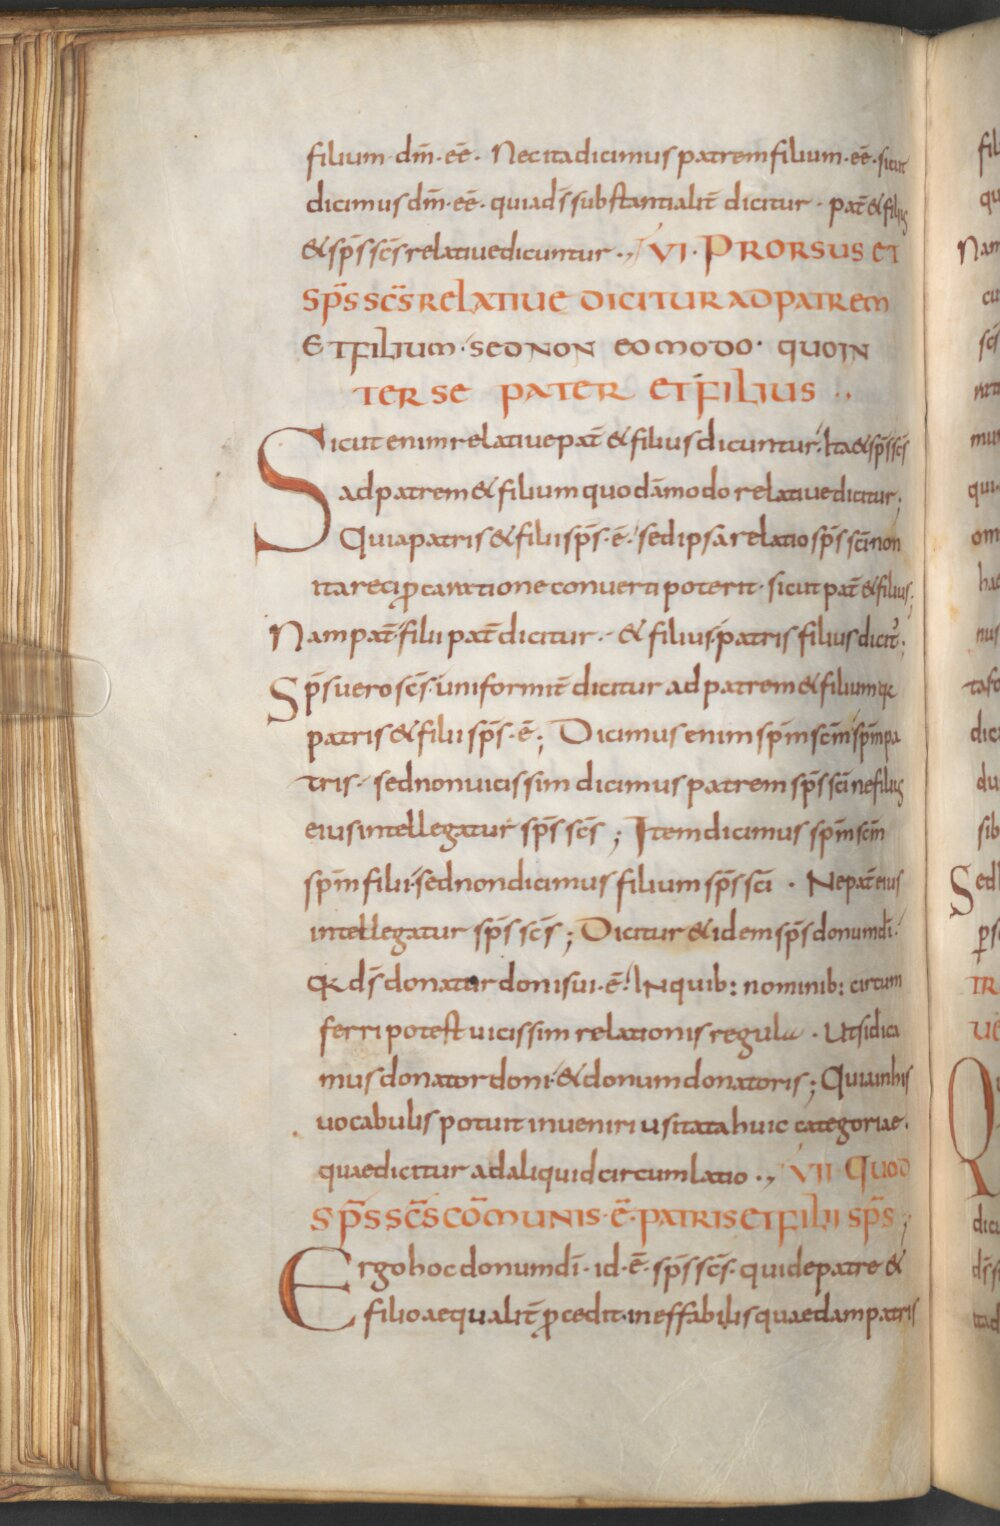 filium · dm̄ · eē · Nec ita dicimus patrem filium · eē · sicut
dicimus dm̄ · eē · quia ds̄ substantialit̄ dicitur · pat̄ & filius
& sp̄s sc̄s relative dicuntur ., VI · PRORSUS ET
SP̄S SC̄S RELATIUE DICITUR AD PATREM
ET FILIUM · SED NON EO MODO · QUO IN
TER SE PATER ET FILIUS ..
Sicut enim relatiue pat̄ & filius dicuntur · Ita & sp̄s sc̄s
ad patrem & filium quodāmodo relatiue dicitur ;
Quia patris & filii sp̄s · ē · sed ipsa relatio sp̄s sc̄i non
ita recip̱cantione conuerti poterit · sicut pat̄ & filius ;
Nam pat̄ filii pat̄ dicitur · & filius patris filius dicit̄ ;
Sp̄s uero sc̄s · uniformit̄ dicitur ad patrem & filium qꝛ
patris & filii sp̄s · ē ; Dicimus enim sp̄m sc̄m sp̄m pa
tris · sed non uicissim dicimus patrem sp̄s sc̄i ne filius
eius intellegatur sp̄s sc̄s ; Item dicimus sp̄m sc̄m
sp̄m filii · sed non dicimus filium sp̄s sc̄i · Ne pat̄ eius
intellegatur sp̄s sc̄s ; Dicitur & idem sp̄s donum dī ·
qꝛ ds̄ donatur doni sui · ē · In quib: nominib: circum
ferri potest uicissim relationis regula · Ut si dica
mus donator doni · & donum donatoris ; Quia in his
uocabulis potuit inueniri usitata huic categoriae ·
quae dicitur ad aliquid circumlatio ., VII QUOD
SP̄S SC̄S CŌMUNIS · Ē · PATRIS ET FILII SP̄S ;
Ergo hoc donum dī · id · ē · sp̄s sc̄s · qui de patre &
filio aequalit̄ p̱cedit · ineffabilis quaedam patris